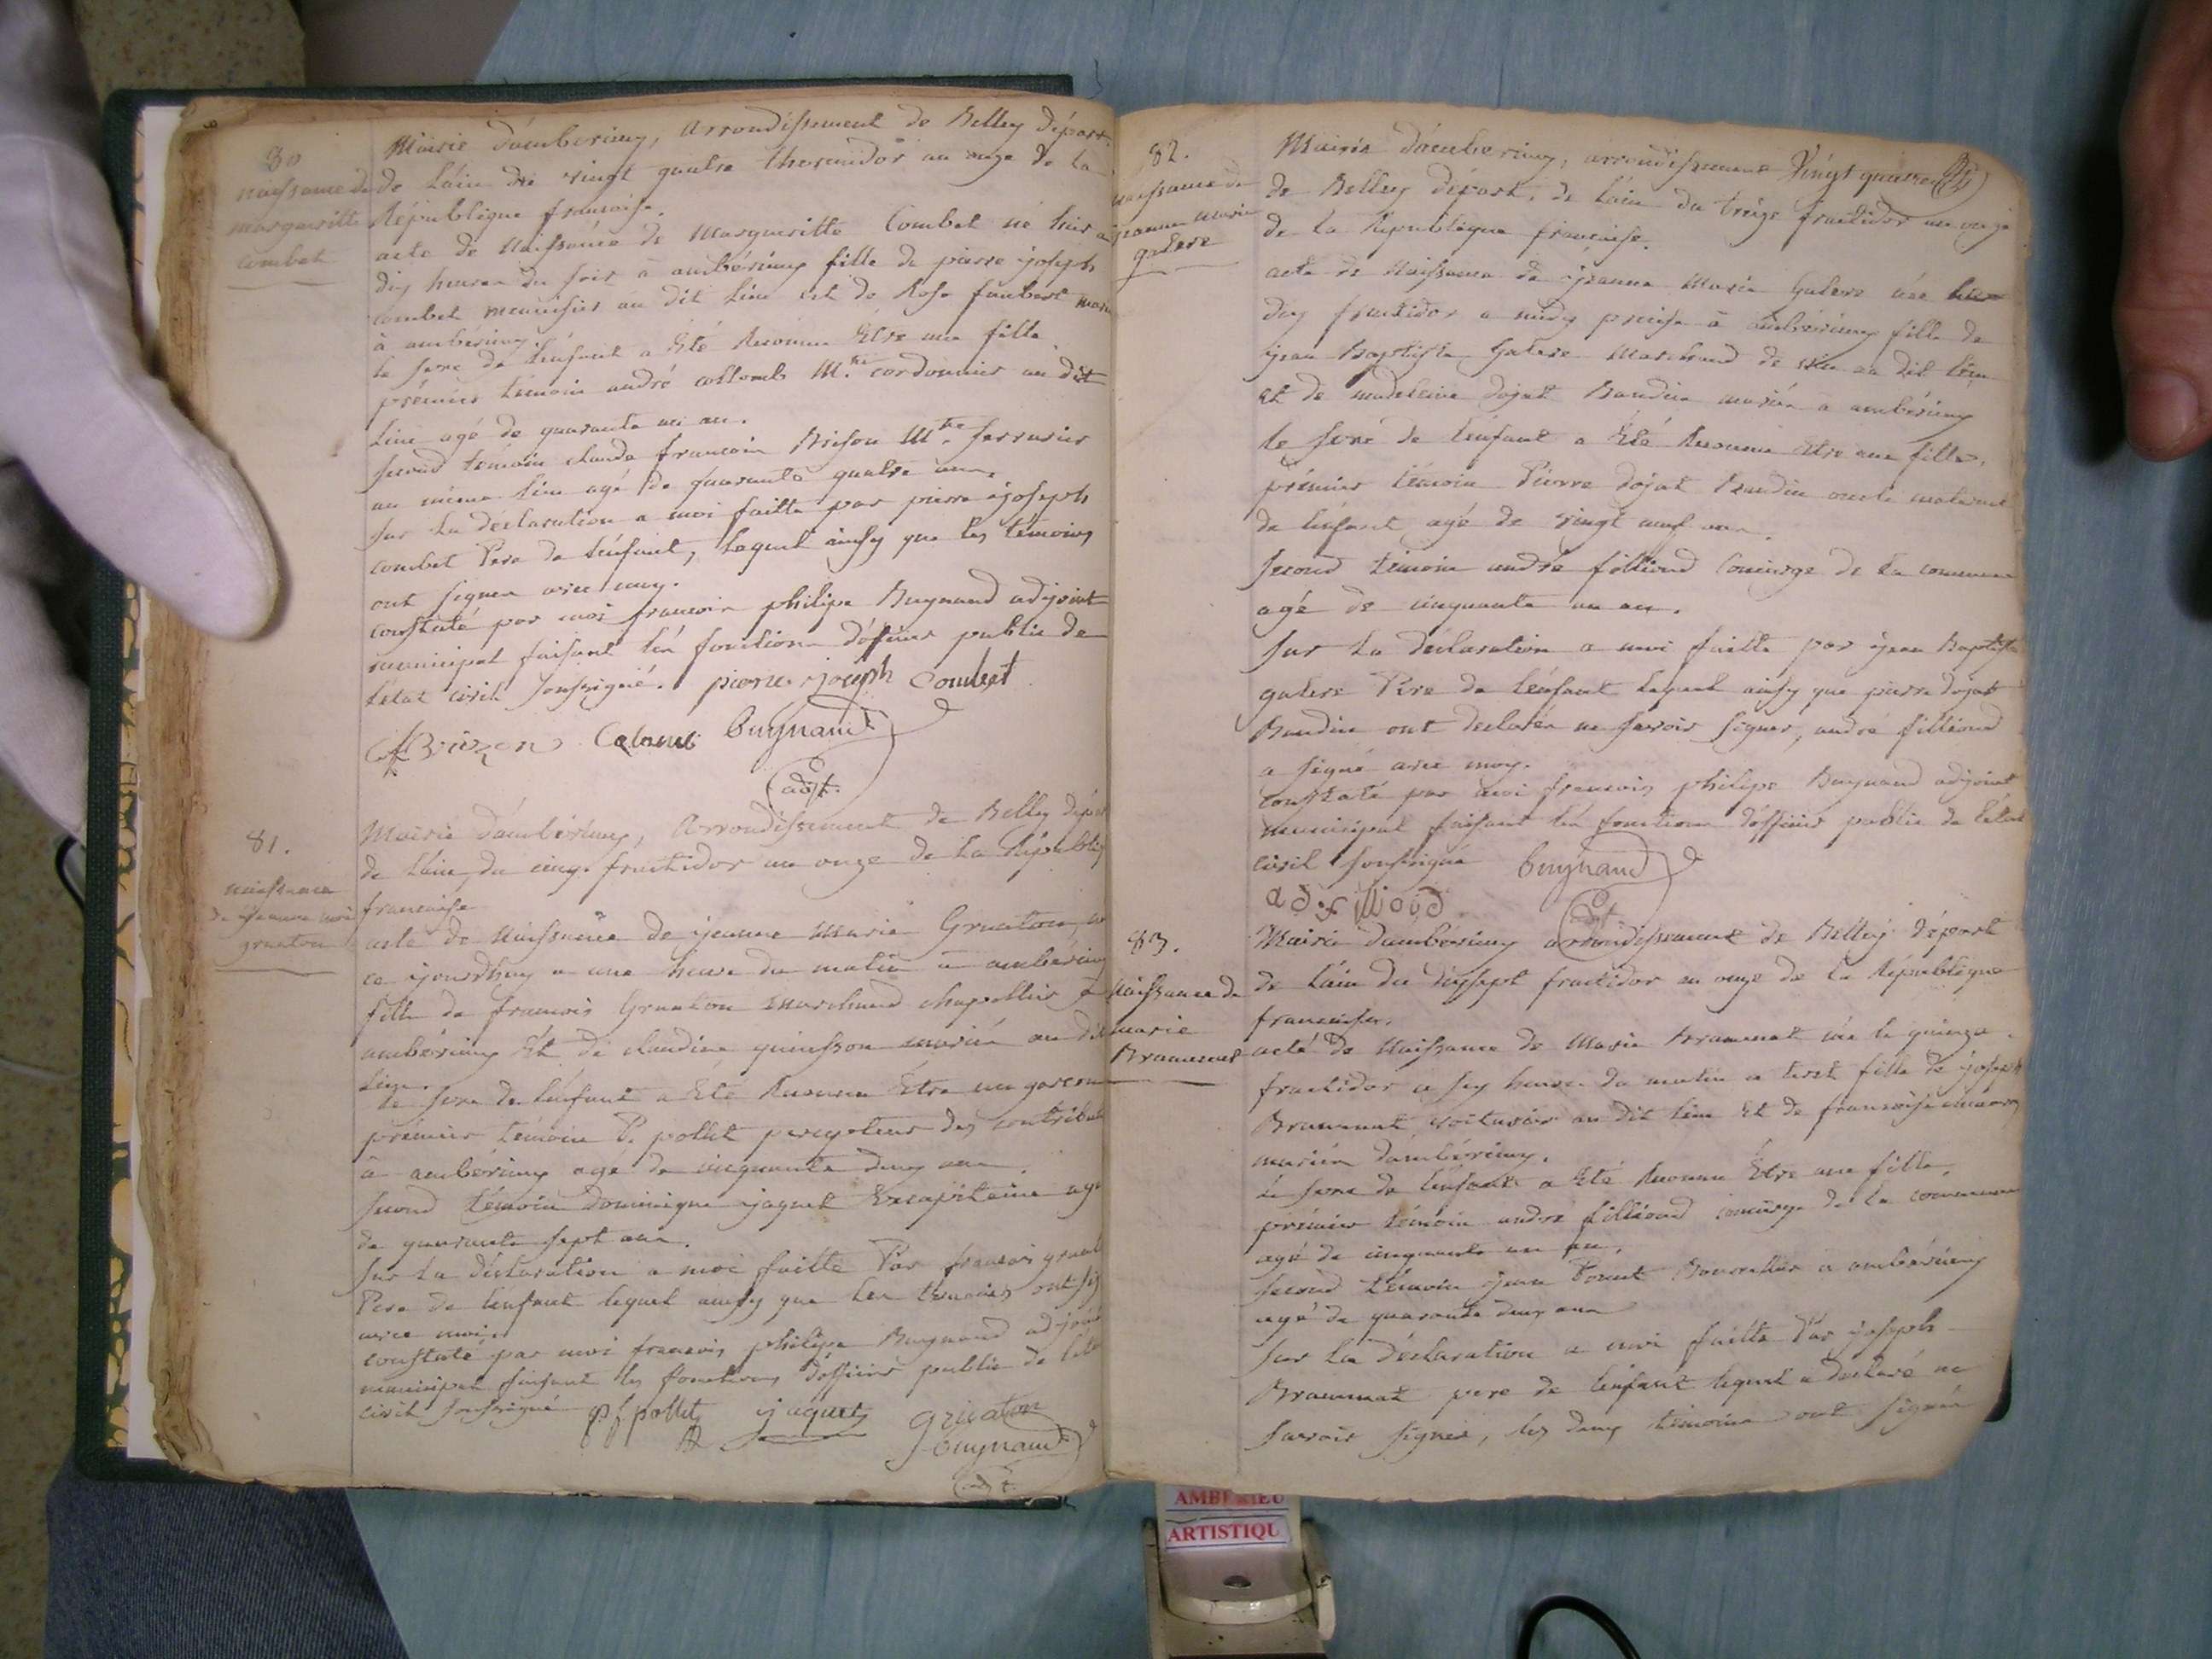 80
naissance de
margueritte
combet
Mairie d'ambérieuy, arrondissement de Belley départ.
de L'ain du vingt quatre thermidor an onze de la
République francaise.
acte de Naissance de Margueritte Combet né hier a
dix heures du soir à ambérieuy fille de pierre joseph
combet menuisier au dit Lieu et de Rose faubert mariés
à ambérieuy.
le sexe de L'enfant a Été Reconnu Être une fille.
prémier temoin andré collomb M.tre cordonnier au dit
Lieu agé de quarante un an.
second témoin claude francois Brison M.tre serrurier
au même Lieu agé de quarante quatre ans.
sur La déclaration a moi faitte par pierre joseph
combet Père de L'enfant, Lequel ainsy que les témoins
ont signer avec moy.
constaté par moi francois philipe Bugnand adjoint
municipal faisant Les fonctions d'officier public de
L'état civil soussigné. pierre joseph Combet
Brizon Colomb Bugnand
adjt.
81.
naissance
de jeanne marie
gruaton
Mairie d'ambérieuy, Arrondissement de Belley départ
de L'ain du cinq fructidor an onze de la Républiq
francaise
acte de Naissance de jeanne Marie Gruaton, né
ce jourdhuy a une heure du matin à ambérieuy
fille de francois Gruaton marchand chapellier à
ambérieuy Et de claudine mariés au dit
Lieu.
le sexe de L'enfant a Été Reconnu Être un garcon
prémier témoin P. pollet percepteur des contribut
à ambérieuy agé de cinquante deux ans.
second témoin Dominique jaquet Excapitaine agé
de quarante sept ans.
sur La déclaration a moi faitte Par francois gruat
Pere de L'enfant lequel ainsy que les temoins ont sig
avec moi.
constaté par moi francois philipe Bugnand adjoint
municipal faisant les fonctions d'officier public de L'ét
civil soussigné pollet jaquet gruaton
Bugnand
adjt.
82.
naissance de
jeanne marie
galere
Vingt quatre
Mairie d'ambérieuy, arrondissement
de Belley départ. de L'ain du treize fructidor an onze
de la République francaise.
acte de Naissance de jeanne Marie Galere née
dix fructidor a midy precise à ambérieuy fille de
jean Baptiste Galere Marchand de vin au dit Lieu
et de madeleine dojat Baudin mariés à ambérieuy
le sexe de L'enfant a Été Reconnu Être une fille.
prémier témoin Pierre dojat Baudin oncle maternel
de L'enfant agé de vingt neuf ans.
second témoin andré filliond Concierge de La commune
agé de cinquante un an.
sur La déclaration a moi faitte par jean Baptiste
galere Père de L'enfant Lequel ainsy que pierre dojat
Baudin ont declarés ne savoir signer, andré filliond
a signé avec moy.
constaté par moi francois philipe Bugnand adjoint
municipal faisant les fonctions d'officier public de L'état
civil soussigné Bugnand
adjt.
83.
Naissance de
marie
Brammerat
Mairie d'ambérieuy arrondissement de Belley départ
de L'ain du dixsept fructidor an onze de la République
francaise.
acte de Naissance de Marie Brammerat née le quinze
fructidor a six heures du matin a tiret fille de joseph
Brammerat voiturier au dit lieu Et de francoise
mariés d'ambérieuy.
le sexe de L'enfant a Été Reconnu Être une fille.
prémier témoin andré filliond concierge de la commune
agé de cinquante un an.
second témoin jean Bourrellier a ambérieuy
agé de quarante deux ans
sur La déclaration a moi faitte Par joseph
Brammerat pere de L'enfant lequel a declaré ne
savoir signer, les deux témoins ont signés
AMBERIEU
ARTISTIQU